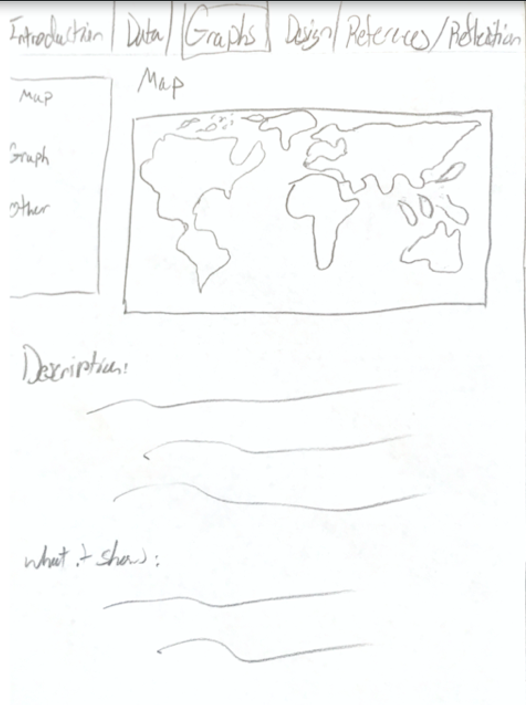 Introduction | Data | Graphs | Design | References/Reflection
Map
Map
Graph
Other
Description:
what it shows: